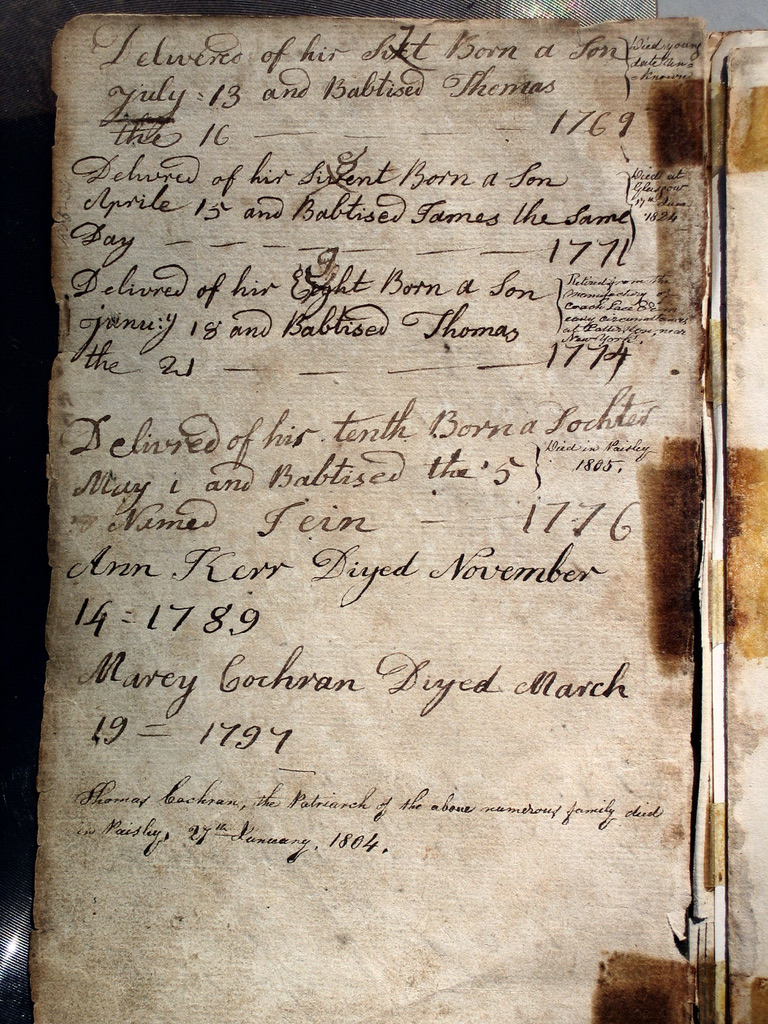 Delivered of his Sixt 7 Born a Son
July = 13 and Babtised Thomas
the 16 — — — — 1769
Died young
date un-
=known
Delivred of his Sivent 8 Born a Son
Aprile 15 and Babtised James the Same
Day — — — — — 1771
Died at
Glasgow
17th June
1824
Delivred of his Eight 9 Born a Son
Januy 18 and Babtised Thomas
the 21 — — — — 1774
Retired from the
Manufactory of
Coach Lace &c in
easy circumstances
at Patterson, near
New York.
Delivred of his tenth Born a Dochter
May 1 and Babtised the 5
Named Jein — — 1776
Died in Paisley
1805.
Ann Kerr Diyed November
14 = 1789
Marey Cochran Diyed March
19 = 1797
Thomas Cochran, the Patriarch of the above numerous family died
in Paisley, 27th January, 1804.